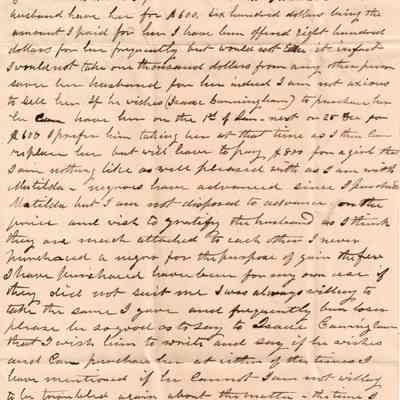 husband have her for $600. six hundred dollars being the
amount I paid for her I have been offered eight hundred
dollars for her frequently but would not take it indeed
I would not take one thousand dollars from any other person
save her husband for her indeed I am not axious
to sell her If he wishes (Isaac Cunningham) to purchase her
he can have her on the 1st of Jan. next or 25 Dec for
$600 I prefer him taking her at that time as I then can
replace her but will have to pay $800 for a girl that
I am nothing like as well pleased with as I am with
Matilda - negroes have advanced since I purchased
Matilda but I am not disposed to advance on the
price and wish to gratify the husband as I think
they are much attached to each other I never
purchased a negro for the purpose of gain the few
I have purchased have been for my own use if
they did not suit me I was always willing to
take the same I gave and frequently been loser
please be so good as to say to Isaac Cunningham
that I wish him to write and say if he wishes
and can purchase her at either of the times I
have mentioned if he cannot I am not willing
to be troubled again about the matter - the time I